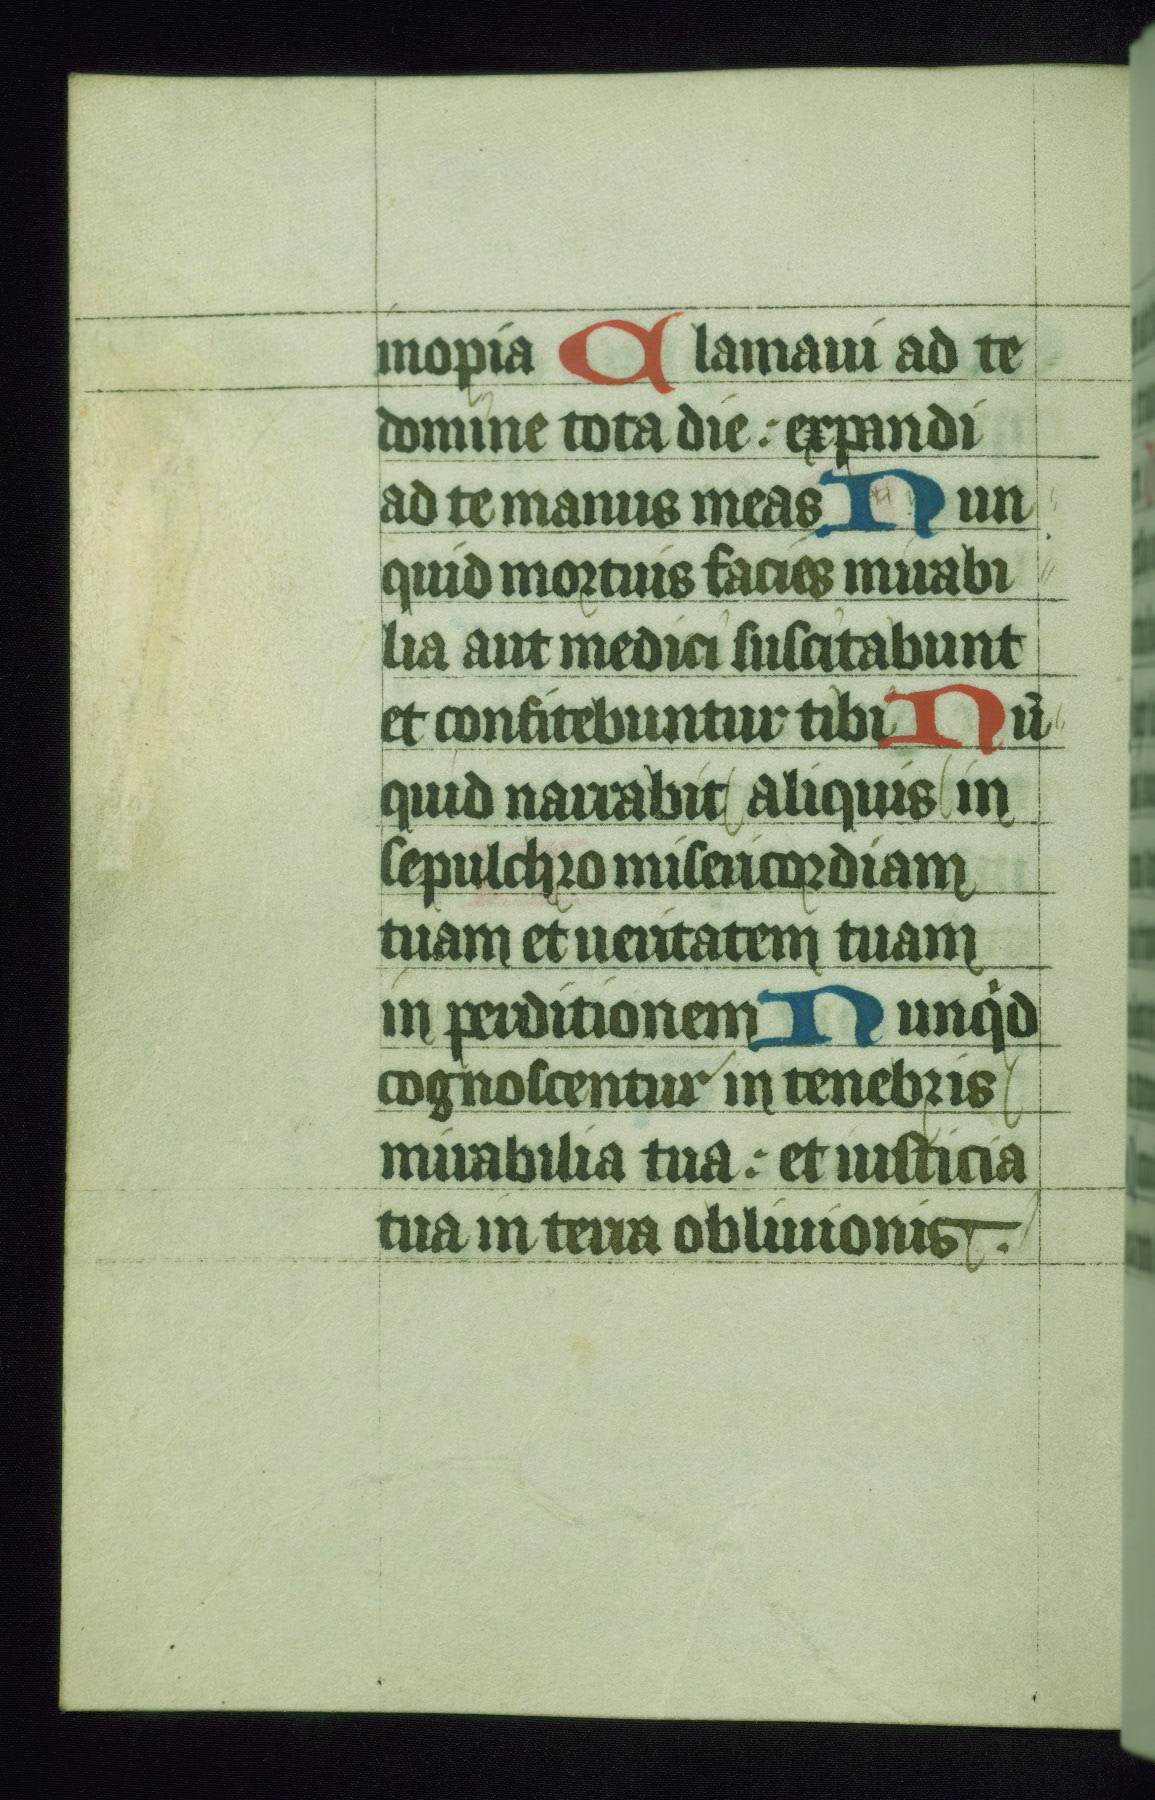 inopia Clamaui ad te
domine tota die : expandi
ad te manus meas Nun
quid mortuis facies mirabi
lia aut medici suscitabunt
et confitebuntur tibi Nū
quid narrabit aliquis in
sepulchro misericordiam
tuam et ueritatem tuam
in perditionem Nunqͥd
cognoscentur in tenebris
mirabilia tua : et iusticia
tua in terra obliuionis .